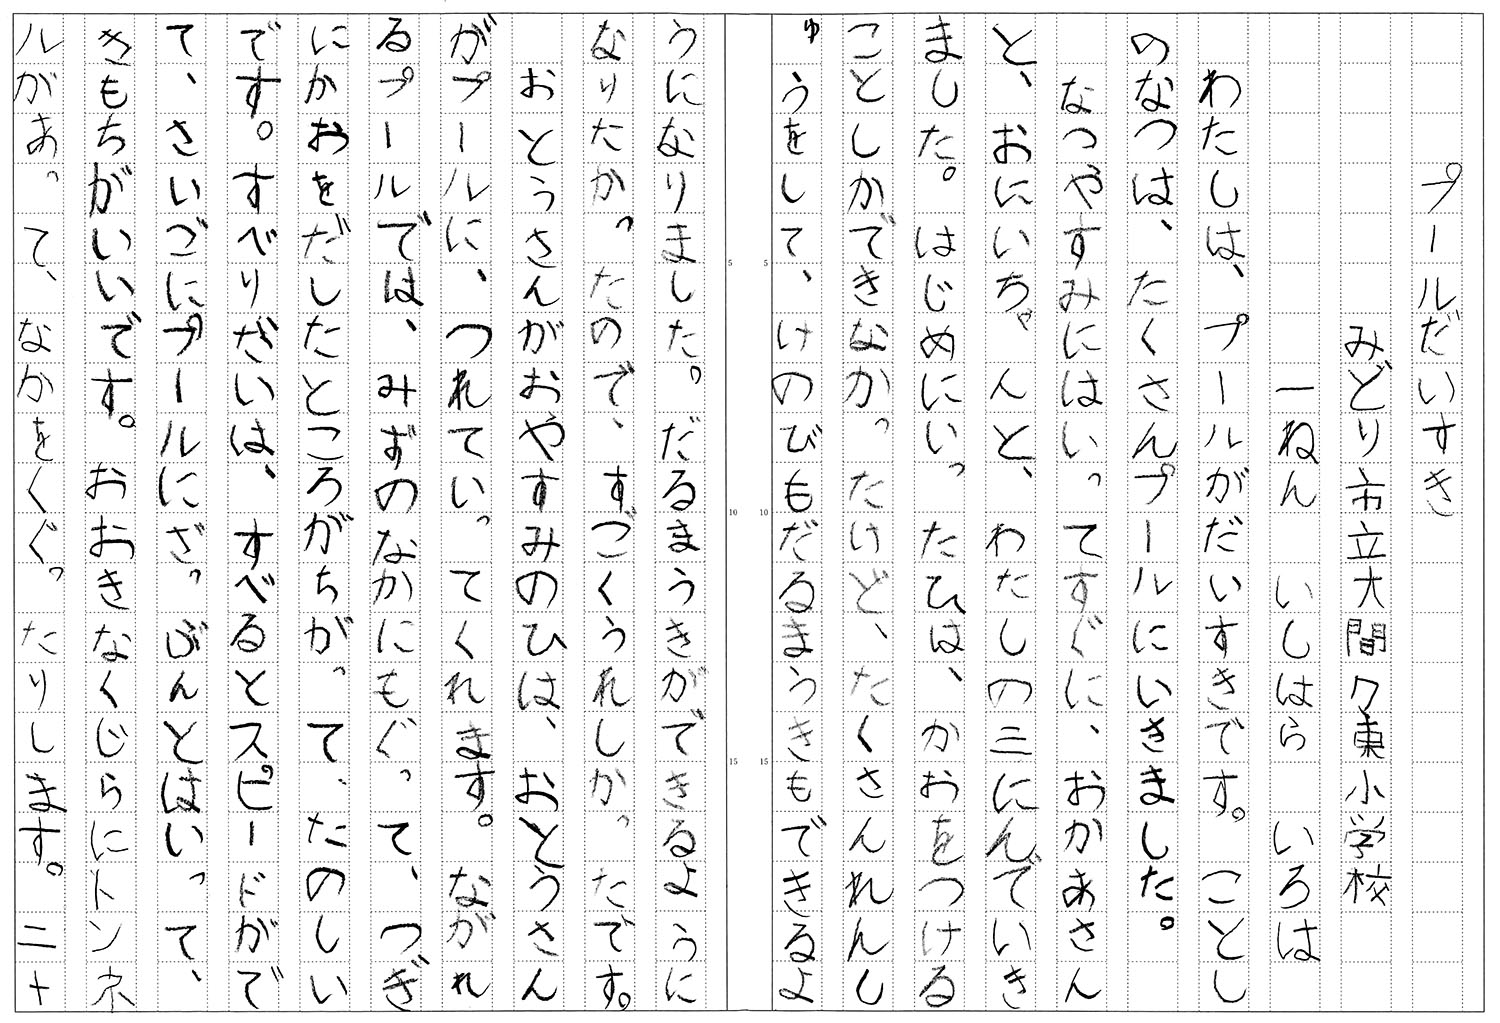 プールだいすき
みどり市立大間々東小学校
一ねん いしはら いろは
わたしは、プールがだいすきです。ことし
のなつは、たくさんプールにいきました。
なつやすみにはいってすぐに、おかあさん
と、おにいちゃんと、わたしの三にんでいき
ました。はじめにいったひは、かおをつける
ことしかできなかったけど、たくさんれんし
ゅうをして、けのびもだるまうきもできるよ
うになりました。だるまうきができるように
なりたかったので、すごくうれしかったです。
おとうさんがおやすみのひは、おとうさん
がプールに、つれていってくれます。ながれ
るプールでは、みずのなかにもぐって、つぎ
にかおをだしたところがちがって、たのしい
です。すべりだいは、すべるとスピードがで
て、さいごにプールにざっぶんとはいって、
きもちがいいです。おおきなくじらにトンネ
ルがあって、なかをくぐったりします。二十
5
5
10
10
15
15